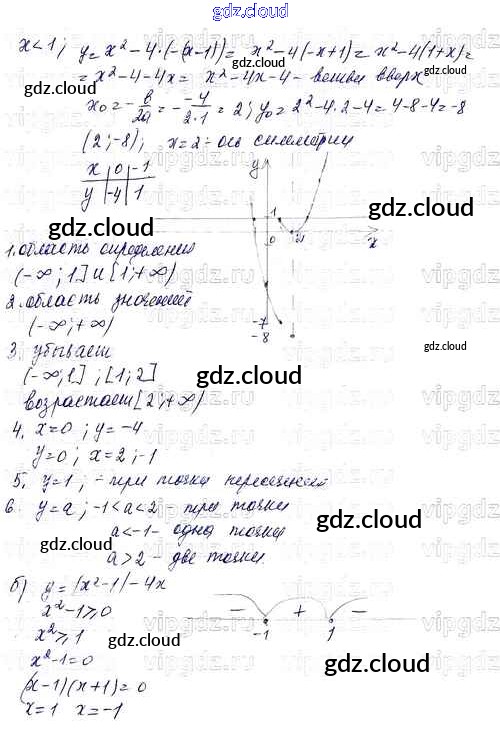 gdz.cloud
x<1; y=x²-4·(-(x-1))= x²-4(-x+1)=x²-4(1+x)=
=x²-4-4x= x²-4x-4 - ветви вверх
x₀=-в/2a=-(-4)/2·1=2; y₀=2²-4·2-4=4-8-4=-8
(2;-8); x=2 - ось симметрии
x | 0 | -1
y | -4 | 1
y
1
0
x
-7
-8
1. область определения
(-∞;1] и [1;+∞)
2. область значений
(-∞;+∞)
3. убывает
(-∞;1] ; [1;2]
возрастает [2;+∞)
4. x=0 ; y=-4
y=0; x=2;-1
5. y=1, - три точки пересечения
6. y=a; -1<a<2 - три точки
a<-1 - одна точка
a>2 - две точки.
б) y=|x²-1|-4x
x²-1⩾0
x²⩾1
x²-1=0
(x-1)(x+1)=0
x=1 x=-1
- + -
-1 1
gdz.cloud
gdz.cloud
gdz.cloud
gdz.cloud
gdz.cloud
gdz.cloud
gdz.cloud
gdz.cloud
gdz.cloud
gdz.cloud
gdz.cloud